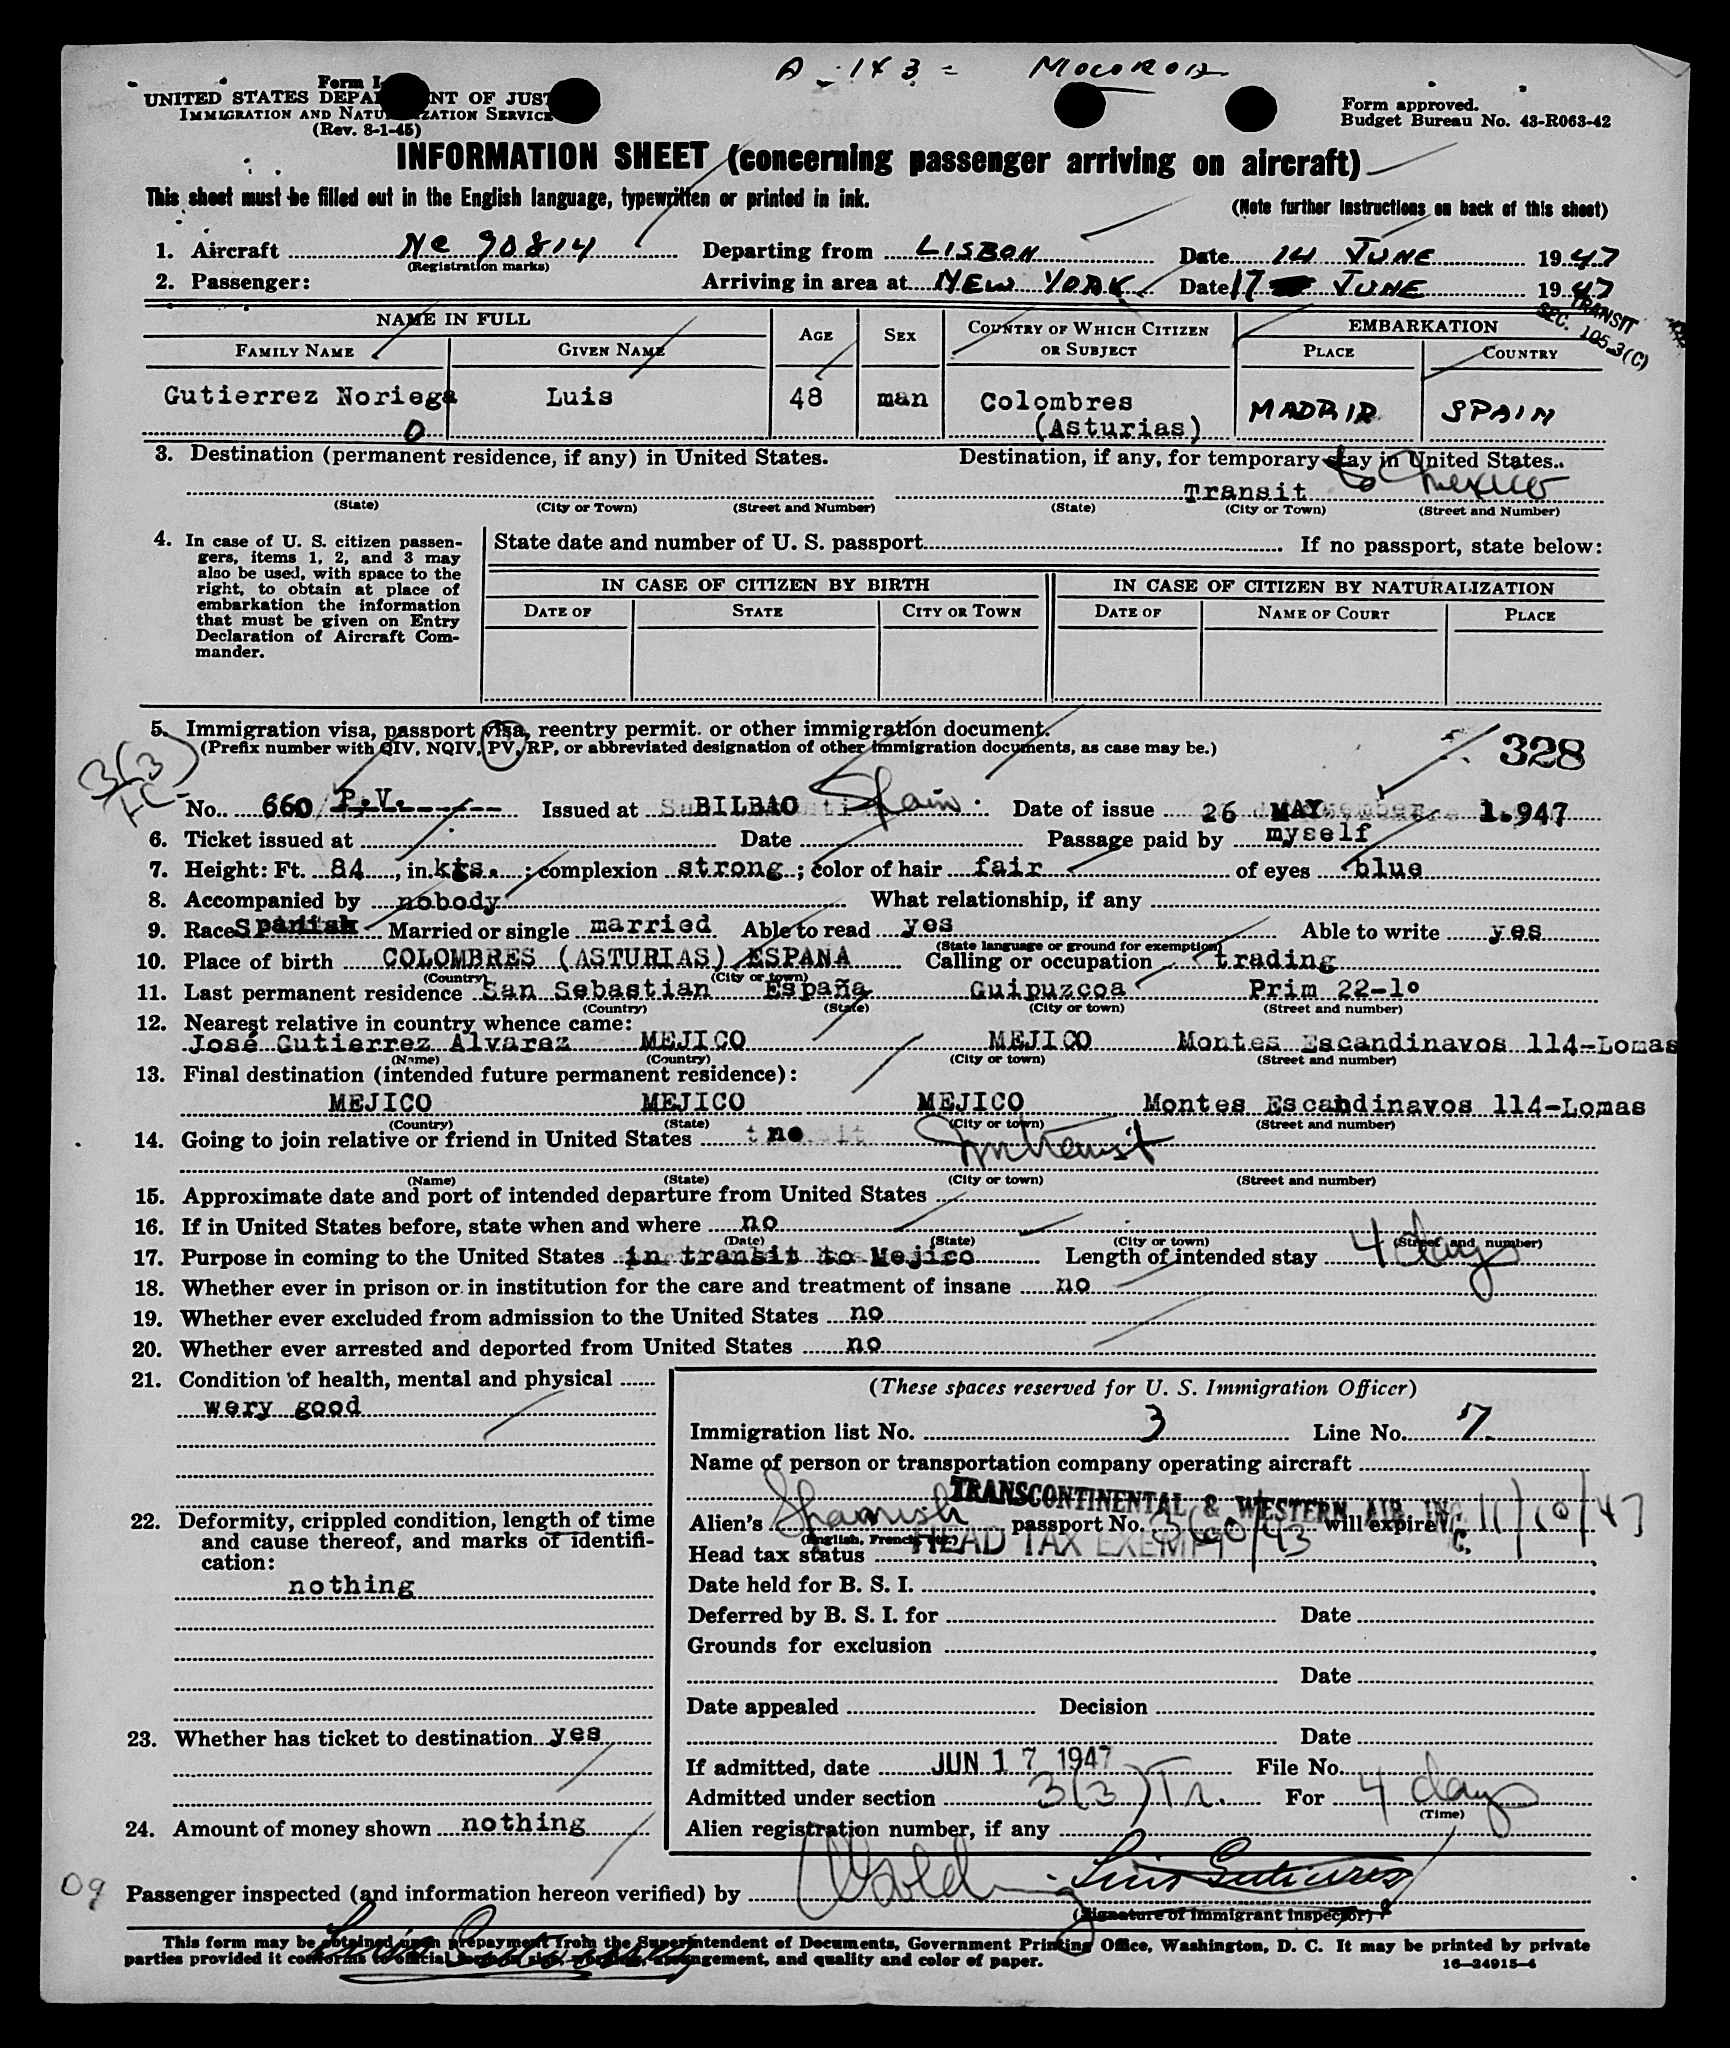 A - 1 X 3 =
Form I-
UNITED STATES DEPA NT OF JUST
IMMIGRATION AND NATU ZATION SERVICE
(Rev. 8-1-45)
Form approved.
Budget Bureau No. 43-R063-42
INFORMATION SHEET (concerning passenger arriving on aircraft)
This sheet must be filled out in the English language, typewritten or printed in ink.
(Note further instructions on back of this sheet)
1. Aircraft NC 90814 Departing from LISBON Date 14 JUNE 1947
(Registration marks)
2. Passenger: Arriving in area at NEW YORK Date 17 JUNE 1947
TRANSIT
SEC. 105.3(C)
NAME IN FULL AGE SEX COUNTRY OF WHICH CITIZEN OR SUBJECT EMBARKATION
FAMILY NAME GIVEN NAME PLACE COUNTRY
Gutierrez Noriega Luis 48 man Colombres MADRID SPAIN
O (Asturias)
3. Destination (permanent residence, if any) in United States. Destination, if any, for temporary stay in United States.
Transit to Mexico
(State) (City or Town) (Street and Number) (State) (City or Town) (Street and Number)
4. In case of U. S. citizen passen-
gers, items 1, 2, and 3 may
also be used, with space to the
right, to obtain at place of
embarkation the information
that must be given on Entry
Declaration of Aircraft Com-
mander.
State date and number of U. S. passport If no passport, state below:
IN CASE OF CITIZEN BY BIRTH IN CASE OF CITIZEN BY NATURALIZATION
DATE OF STATE CITY OR TOWN DATE OF NAME OF COURT PLACE
5. Immigration visa, passport visa, reentry permit. or other immigration document.
(Prefix number with QIV, NQIV, PV, RP, or abbreviated designation of other immigration documents, as case may be.)
328
3(3)
No. 660 P.V. Issued at BILBAO Spain Date of issue 26 MAY 1.947
6. Ticket issued at Date Passage paid by myself
7. Height: Ft. 84, in. kts. ; complexion strong ; color of hair fair of eyes blue
8. Accompanied by nobody What relationship, if any
9. Race Spanish Married or single married Able to read yes Able to write yes
(State language or ground for exemption)
10. Place of birth COLOMBRES (ASTURIAS) ESPAÑA Calling or occupation trading
(Country) (City or town)
11. Last permanent residence San Sebastian España Guipuzcoa Prim 22-1º
(Country) (State) (City or town) (Street and number)
12. Nearest relative in country whence came:
José Gutierrez Alvarez MEJICO MEJICO Montes Escandinavos 114-Lomas
(Name) (Country) (City or town) (Street and number)
13. Final destination (intended future permanent residence):
MEJICO MEJICO MEJICO Montes Escandinavos 114-Lomas
(Country) (State) (City or town) (Street and number)
14. Going to join relative or friend in United States no In transit
(Name) (State) (City or town) (Street and number)
15. Approximate date and port of intended departure from United States
16. If in United States before, state when and where no
(Date) (State) (City or town) (Street and number)
17. Purpose in coming to the United States in transit to Mejico Length of intended stay 4 days
18. Whether ever in prison or in institution for the care and treatment of insane no
19. Whether ever excluded from admission to the United States no
20. Whether ever arrested and deported from United States no
21. Condition of health, mental and physical
wery good
22. Deformity, crippled condition, length of time
and cause thereof, and marks of identifi-
cation:
nothing
23. Whether has ticket to destination yes
24. Amount of money shown nothing
(These spaces reserved for U. S. Immigration Officer)
Immigration list No. 3 Line No. 7.
Name of person or transportation company operating aircraft
TRANSCONTINENTAL & WESTERN AIR INC.
Alien's Spanish passport No. will expire 11/10/47
(English, French, etc.)
Head tax status HEAD TAX EXEMPT
Date held for B. S. I.
Deferred by B. S. I. for Date
Grounds for exclusion
Date
Date appealed Decision
Date
If admitted, date JUN 17 1947 File No.
Admitted under section 3(3) Tr. For 4 days
(Time)
Alien registration number, if any
09
Passenger inspected (and information hereon verified) by Luis Gutierrez
(Signature of immigrant inspector)
This form may be obtained upon prepayment from the Superintendent of Documents, Government Printing Office, Washington, D. C. It may be printed by private
parties provided it conforms to official form in size, wording, arrangement, and quality and color of paper.
16—24915-4
Luis Gutierrez